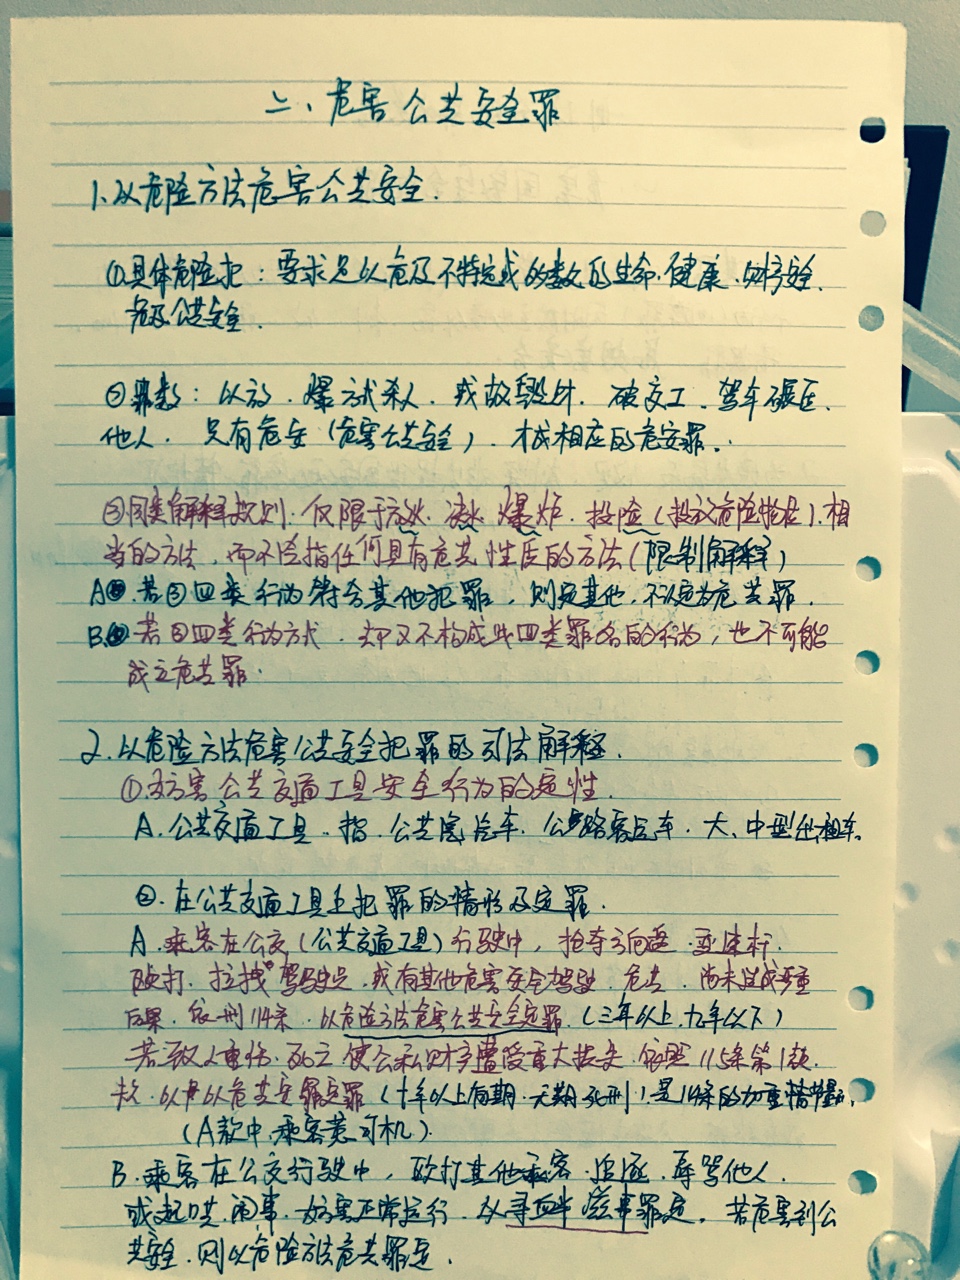 二、危害公共安全罪
1.以危险方法危害公共安全.
①具体危险犯：要求足以危及不特定或的数的生命.健康.财产安全.
危及公共安全.
②罪数：以放.爆方式杀人.或故毁财.破交工.驾车碾压
他人.只有危安(危害公共安全).才成相应的危安罪.
③同类解释规则.仅限于放火.决水.爆炸.投险(投放危险物质).相
当的方法,而不是指任何具有危共性质的方法(限制解释)
A.若③四类行为符合其他犯罪,则定其他,不认定为危共罪.
B.若③四类行为方式.却又不构成此四类罪名的行为,也不可能
成立危共罪.
2.以危险方法危害公共安全犯罪的司法解释.
①妨害公共交通工具安全行为的定性.
A.公共交通工具.指.公共汽车.公路客运车.大、中型出租车.
②.在公共交通工具上犯罪的情形及定罪.
A.乘客在公交(公共交通工具)行驶中,抢夺方向盘.变速杆.
殴打.拉拽驾驶员.或有其他危害安全驾驶.危共.尚未造成严重
后果.依刑114条.以危险方法危害公共安全定罪.(三年以上.十年以下)
若致人重伤.死亡使公私财产遭受重大损失.依照115条第1款.
以危共安罪定罪(十年以上有期.无期.死刑)是114条的加重情节
(A款中.乘客 司机).
B.乘客在公交行驶中,殴打其他乘客.追逐.辱骂他人.
或起哄.闹事.妨害正常运行.以寻衅滋事罪定.若危害到公
共安全.则以危险方法危共罪定.